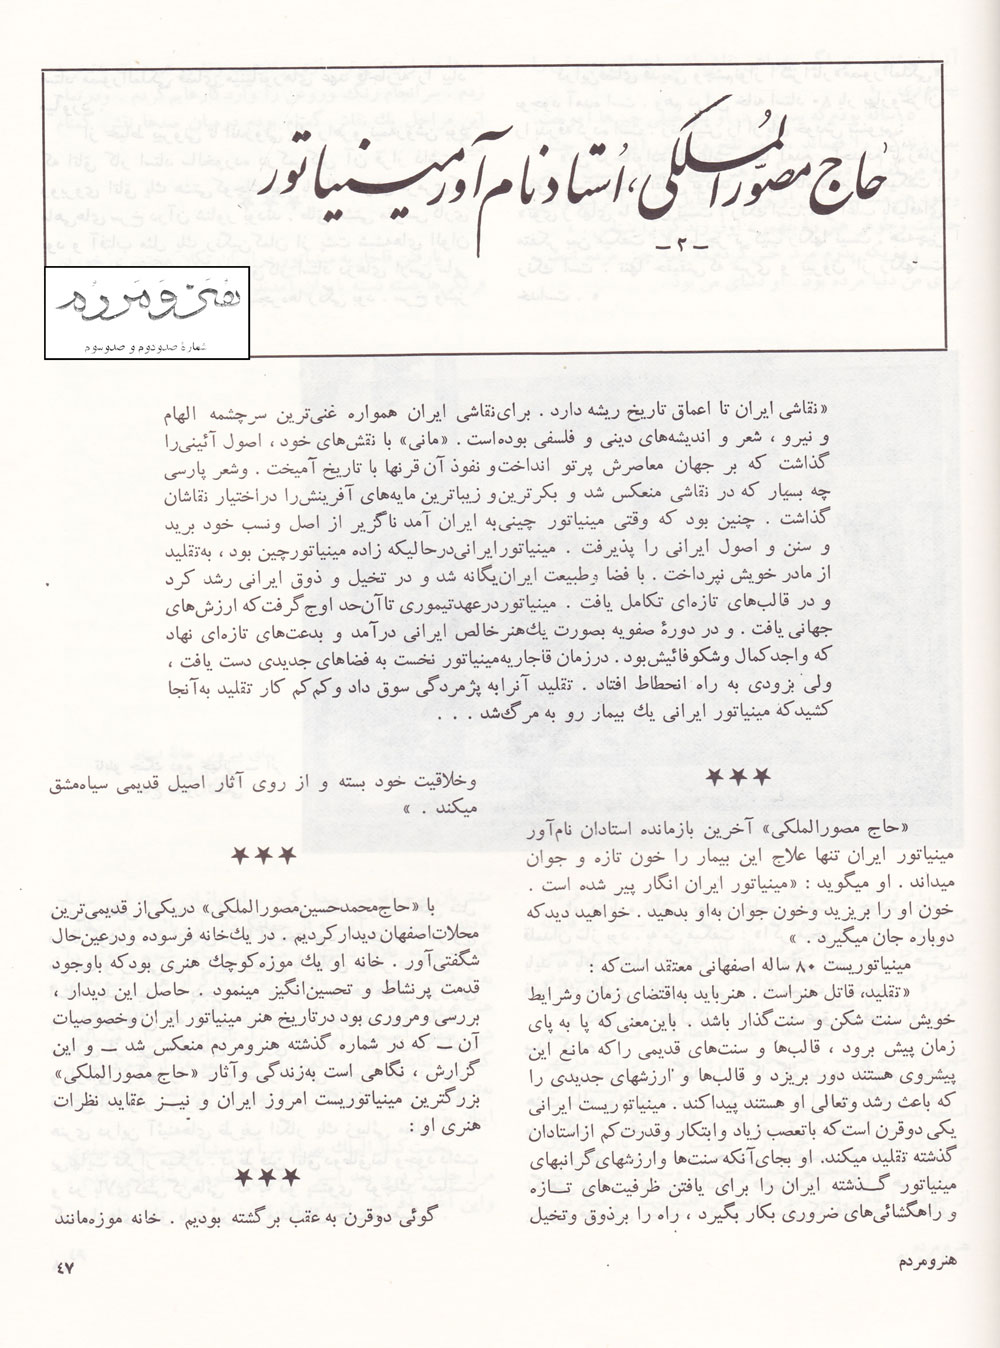 حاج مصوّرالمُلکی، اُستاد نام‌آور مینیاتور
ـ ۲ ـ
هنر و مردم
شمارهٔ صدودوم و صدوسوم
«نقاشی ایران تا اعماق تاریخ ریشه دارد . برای‌نقاشی ایران همواره غنی‌ترین سرچشمه الهام
و نیرو ، شعر و اندیشه‌های دینی و فلسفی بوده‌است . «مانی» با نقش‌های خود ، اصول آئینی‌را
گذاشت که بر جهان معاصرش پرتو انداخت‌و نفوذ آن قرنها با تاریخ آمیخت . وشعر پارسی
چه بسیار که در نقاشی منعکس شد و بکرترین‌و زیباترین مایه‌های آفرینش‌را دراختیار نقاشان
گذاشت . چنین بود که وقتی مینیاتور چینی‌به ایران آمد ناگزیر از اصل ونسب خود برید
و سنن و اصول ایرانی را پذیرفت . مینیاتورایرانی‌درحالیکه زاده مینیاتورچین بود ، به‌تقلید
از مادر خویش نپرداخت . با فضا وطبیعت ایران‌یگانه شد و در تخیل و ذوق ایرانی رشد کرد
و در قالب‌های تازه‌ای تکامل یافت . مینیاتوردرعهدتیموری تاآن‌حد اوج‌گرفت‌که ارزش‌های
جهانی یافت . و در دورهٔ صفویه بصورت یك‌هنرخالص ایرانی درآمد و بدعت‌های تازه‌ای نهاد
که واجدکمال وشکوفائیش‌بود . درزمان قاجاریه‌مینیاتور نخست به فضاهای جدیدی دست یافت ،
ولی بزودی به راه انحطاط افتاد . تقلید آنرابه پژمردگی سوق داد وکم‌کم کار تقلید به‌آنجا
کشیدکه مینیاتور ایرانی یك بیمار رو به مرگ‌شد . . .
★★★
«حاج مصورالملکی» آخرین بازمانده استادان نام‌آور
مینیاتور ایران تنها علاج این بیمار را خون تازه و جوان
میداند . او میگوید : «مینیاتور ایران انگار پیر شده است .
خون او را بریزید وخون جوان به‌او بدهید . خواهید دیدکه
دوباره جان میگیرد . »
مینیاتوریست ۸۰ ساله اصفهانی معتقد است‌که :
«تقلید، قاتل هنراست . هنرباید به‌اقتضای زمان وشرایط
خویش سنت شکن و سنت‌گذار باشد . باین‌معنی‌که پا به پای
زمان پیش برود ، قالب‌ها و سنت‌های قدیمی راکه مانع این
پیشروی هستند دور بریزد و قالب‌ها و ارزشهای جدیدی را
که باعث رشد وتعالی او هستند پیداکند . مینیاتوریست ایرانی
یکی دوقرن است‌که باتعصب زیاد وابتکار وقدرت‌کم ازاستادان
گذشته تقلید میکند. او بجای‌آنکه سنت‌ها وارزشهای‌گرانبهای
مینیاتور گـذشته ایران را برای یافتن ظرفیت‌های تـازه
و راهگشائی‌های ضروری بکار بگیرد ، راه را برذوق وتخیل
وخلاقیت خود بسته و از روی آثار اصیل قدیمی سیاه‌مشق
میکند . »
★★★
با «حاج‌محمدحسین‌مصورالملکی» دریکی‌از قدیمی‌ترین
محلات‌اصفهان دیدارکردیم . در یك‌خانه فرسوده ودرعین‌حال
شگفتی‌آور . خانه او یك موزه‌کوچك هنری بودکه باوجود
قدمت پرنشاط و تحسین‌انگیز مینمود . حاصل این دیدار ،
بررسی ومروری بود درتاریخ هنر مینیاتور ایران وخصوصیات
آن ــ که در شماره گذشته هنرومردم منعکس شد ــ و این
گزارش ، نگاهی است به‌زندگی وآثار «حاج مصورالملکی»
بزرگترین مینیاتوریست امروز ایران و نیـز عقاید نظرات
هنری او :
★★★
گوئی دوقرن به عقب برگشته بودیم . خانه موزه‌مانند
هنرومردم
٤٧